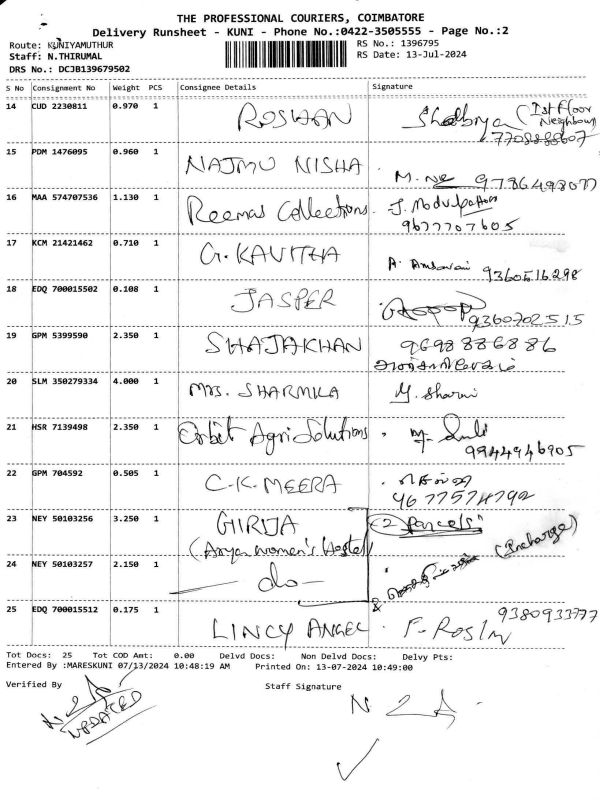 THE PROFESSIONAL COURIERS, COIMBATORE
Delivery Runsheet - KUNI - Phone No.:0422-3505555 - Page No.:2
Route: KUNIYAMUTHUR
RS No.: 1396795
Staff: N.THIRUMAL
RS Date: 13-Jul-2024
DRS No.: DCJB139679502
S No Consignment No Weight PCS Consignee Details Signature
14 CUD 2230811 0.970 1 ROSHAN (Ist Floor Neighbour)
7708888607
15 PDM 1476095 0.960 1 NAJMU NISHA M. 9786498077
16 MAA 574707536 1.130 1 Reemas Collections.
9677707605
17 KCM 21421462 0.710 1 G. KAVITHA A. 9360516298
18 EDQ 700015502 0.108 1 JASPER
9360702515
19 GPM 5399590 2.350 1 SHAJAKHAN 9698886886
20 SLM 350279334 4.000 1 MRS. SHARMILA
21 HSR 7139498 2.350 1 Orbit Agri Solutions.
9944946905
22 GPM 704592 0.505 1 C.K. MEERA
9677574792
23 NEY 50103256 3.250 1 GIRIJA (2 Parcels"
(Aryan women's Hostel) (Incharge)
24 NEY 50103257 2.150 1 — do —
25 EDQ 700015512 0.175 1 LINCY ANGEL. F. Roslin 9380933777
Tot Docs: 25 Tot COD Amt: 0.00 Delvd Docs: Non Delvd Docs: Delvy Pts:
Entered By :MARESKUNI 07/13/2024 10:48:19 AM Printed On: 13-07-2024 10:49:00
Verified By Staff Signature
UPDATED